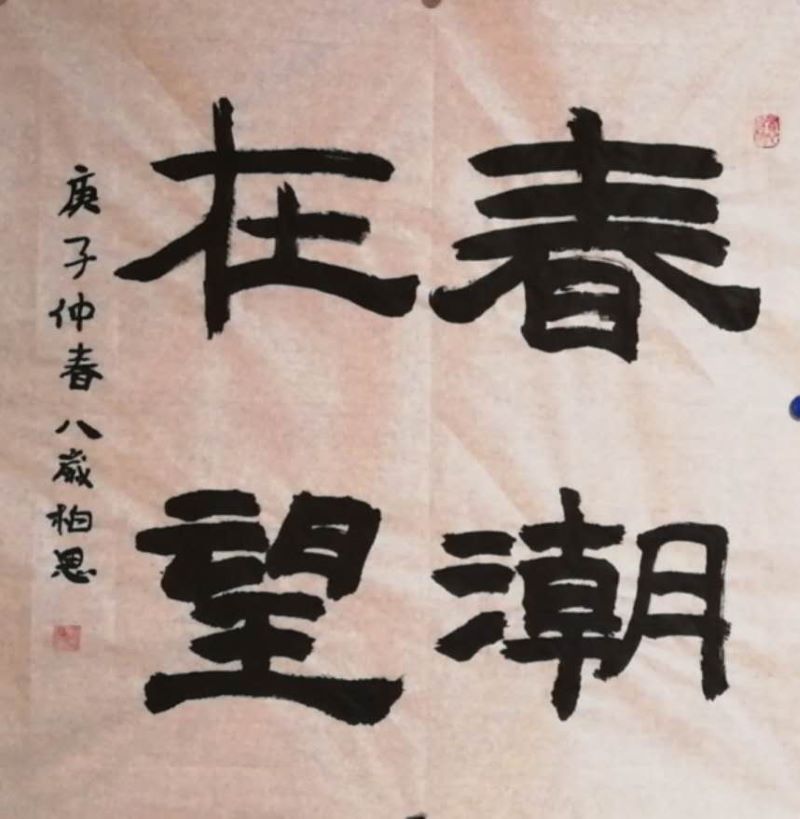 春潮
在望
庚子仲春八歲柏思